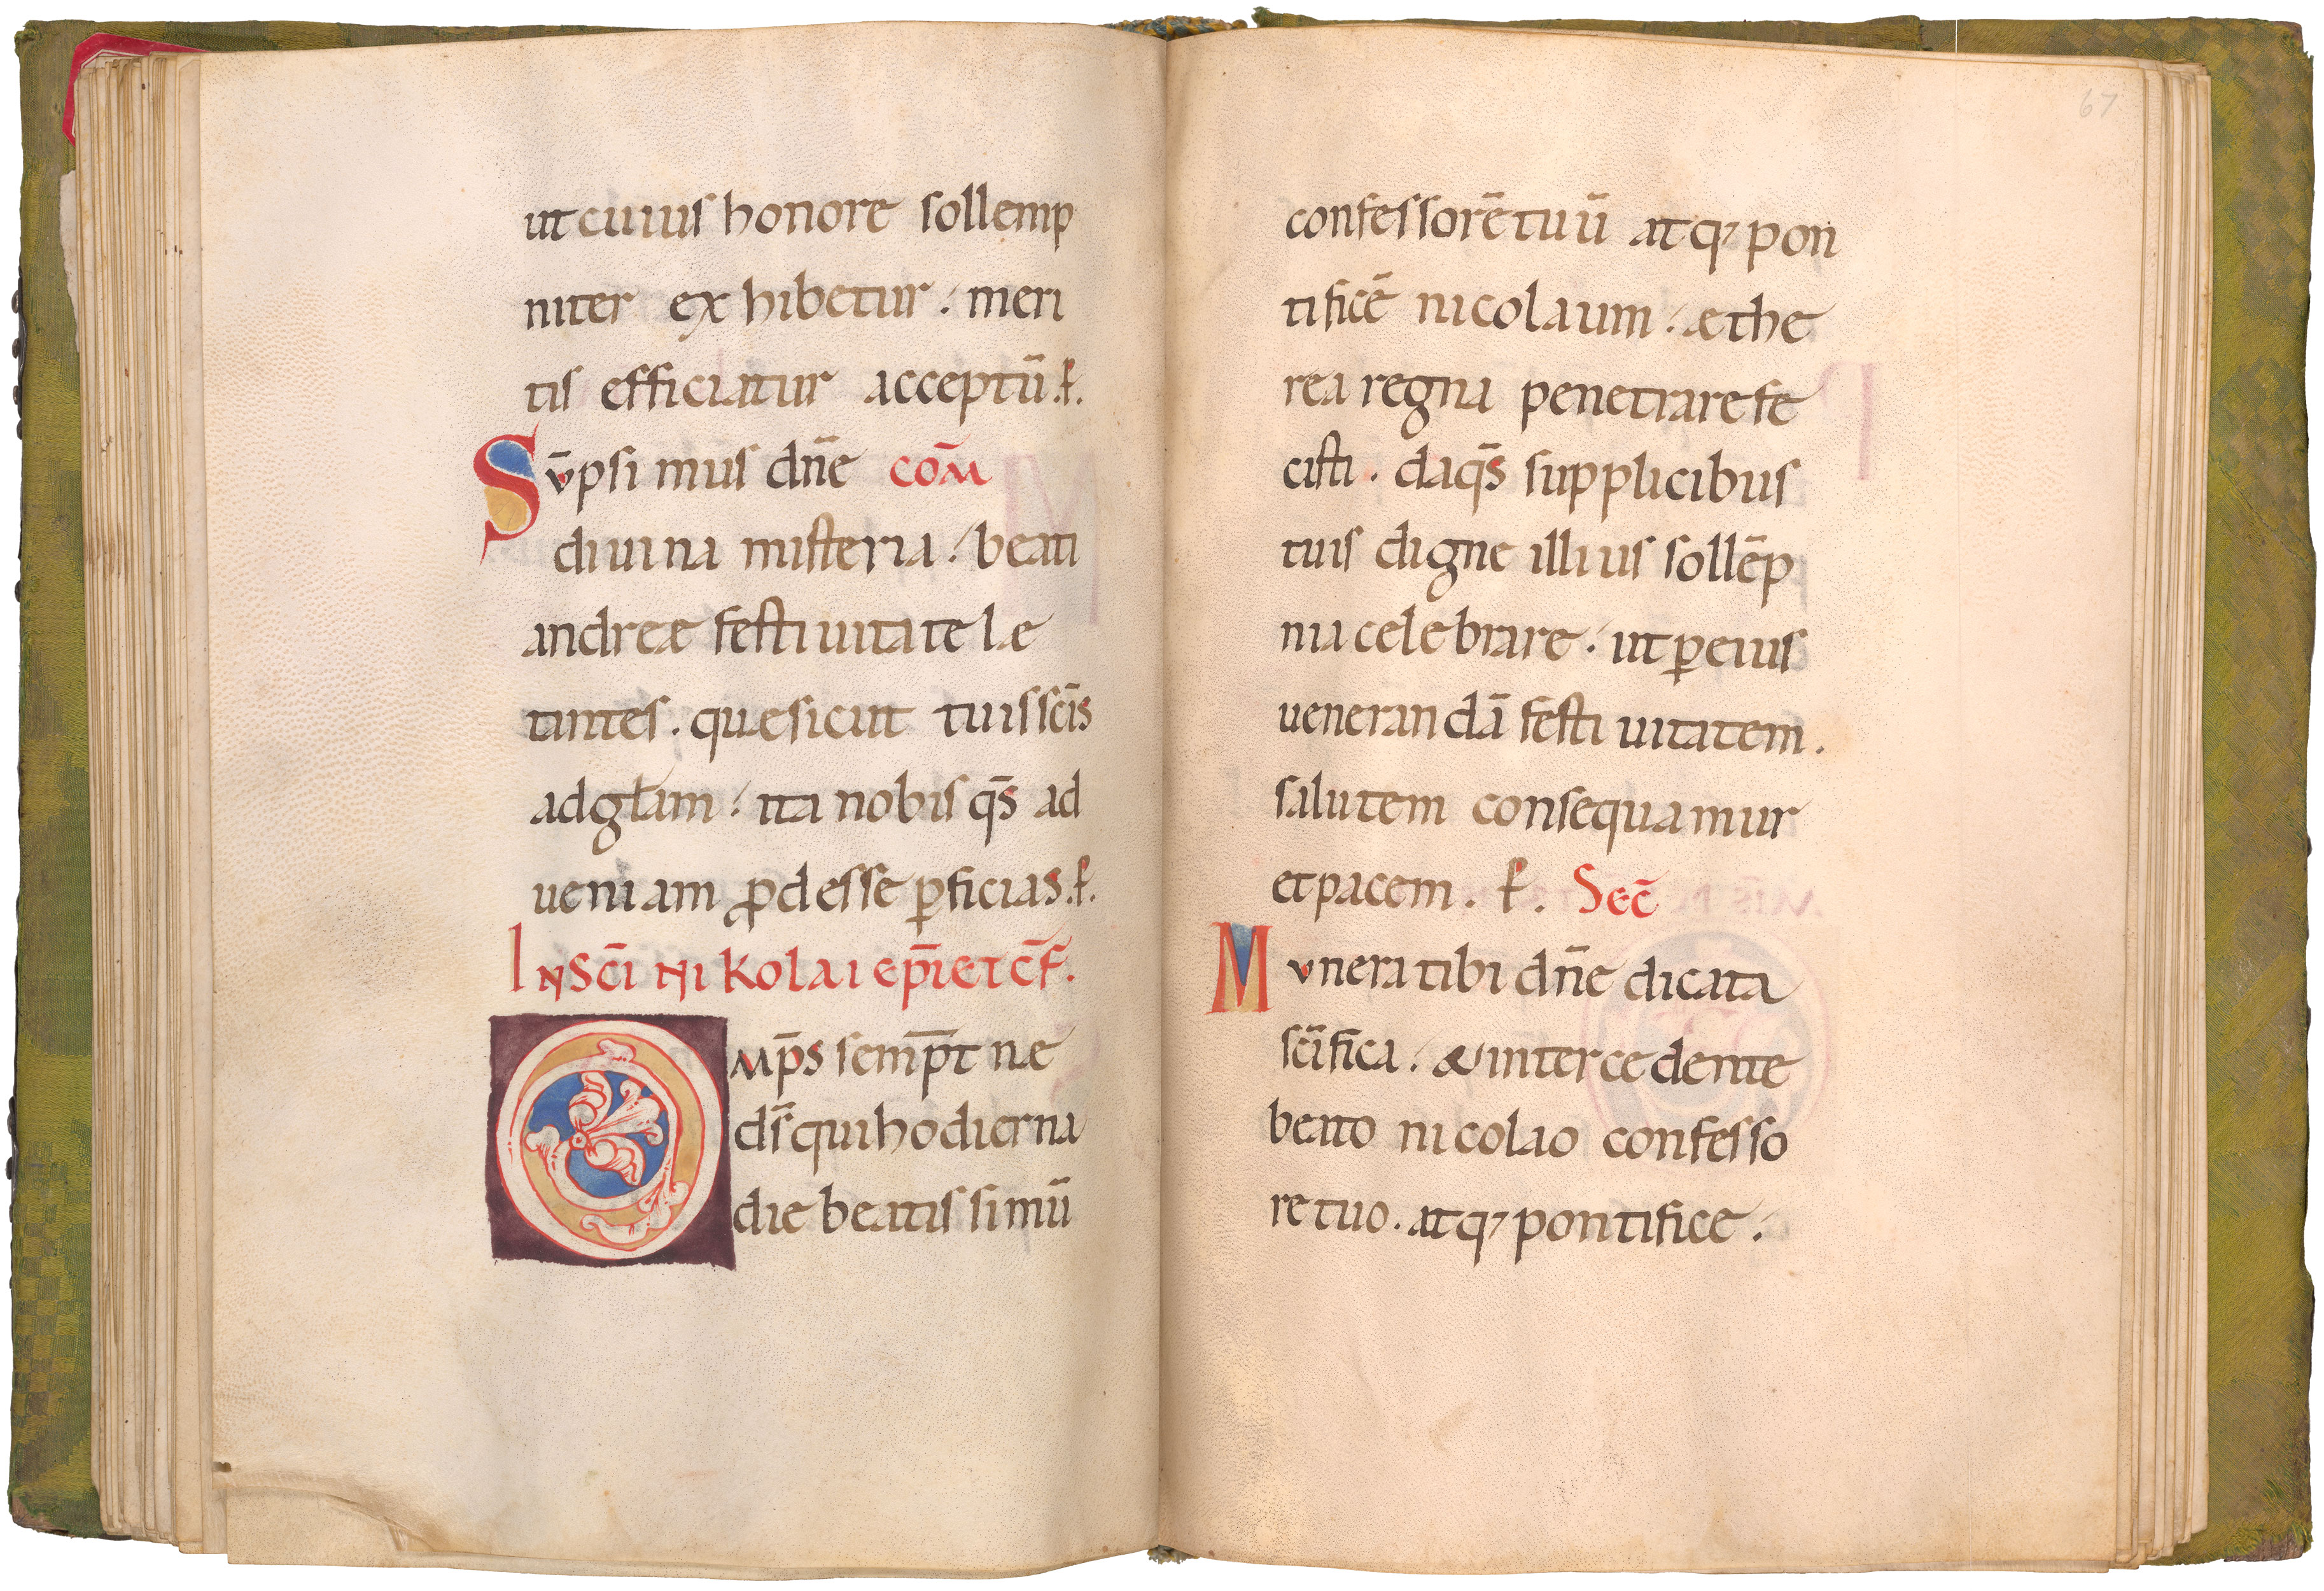 ut cuius honore sollemp
niter exhibetur. meri
tis efficiatur acceptū. ꝑ.
Sūpsimus dn̄e cōm
diuina misteria. beati
andreæ festiuitate læ
tantes. quæ sicut tuis sc̄is
ad gła̅m. ita nobis q̄s ad
ueniam ꝓdesse ꝑficias. ꝑ.
IN SC̄I NIKOLAI EP̄I ET C̄F.
OMP̄s semp̄tnæ
ds̄ qui hodierna
die beatissimū
67
confessorē tuū atq; pon
tificē nicolaum. æthe
rea regna penetrare fe
cisti. da q̄s supplicibus
tuis digne illius sollēp
nia celebrare. ut ꝑ eius
uenerandā festiuitatem.
salutem consequamur
et pacem. ꝑ. Sec̄
Munera tibi dn̄e dicata
sc̄ifica. & intercedente
beato nicolao confesso
re tuo. atq; pontifice.